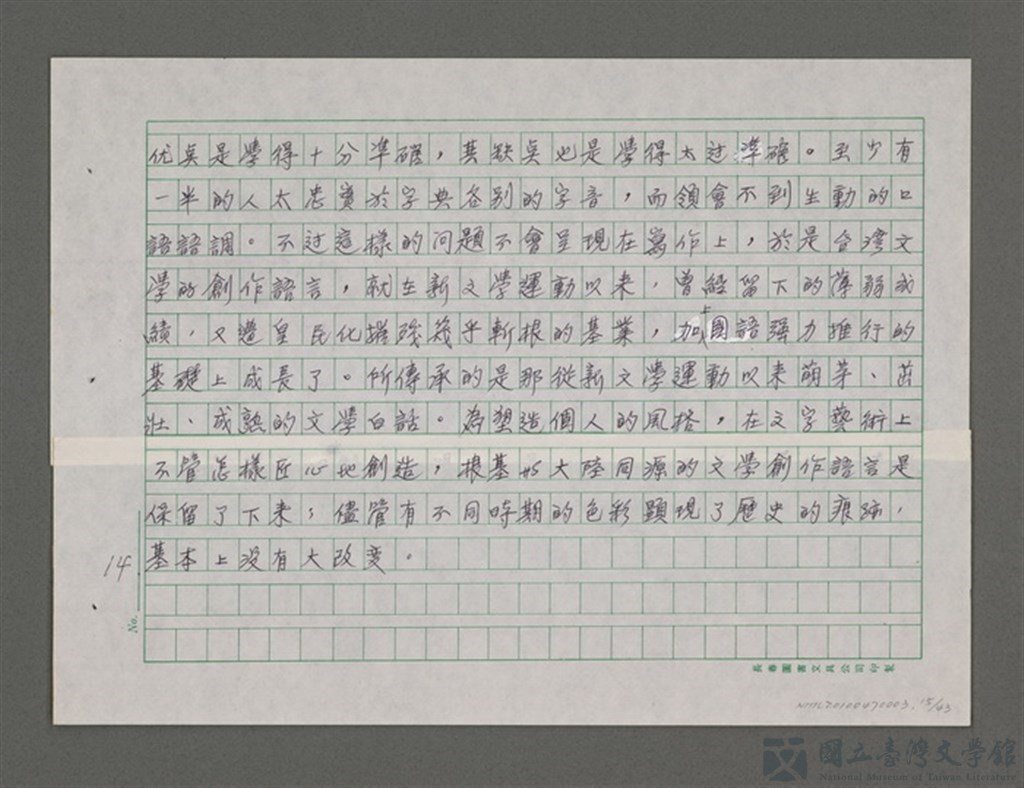 优点是學得十分準確，其缺点也是學得太过準確。至少有
一半的人太忠實於字典各别的字音，而領會不到生動的口
語語調。不过這樣的问題不會呈現在寫作上，於是台灣文
學的創作語言，就在新文學運動以来，曾經留下的薄弱成
績，又遭皇民化摧殘幾乎斬根的基業，加上國語强力推行的
基礎上成長了。所傳承的是那從新文學運動以来萌芽、茁
壯、成熟的文學白話。為塑造個人的風格，在文字藝術上
不管怎樣匠心地創造，根基與大陸同源的文學創作語言是
保留了下来；儘管有不同時期的色彩顯現了歷史的痕跡，
基本上没有大改变。
14
No.
長春圖書文具公司印製
NMTL20100470003. 15/43
國立臺灣文學館
National Museum of Taiwan Literature